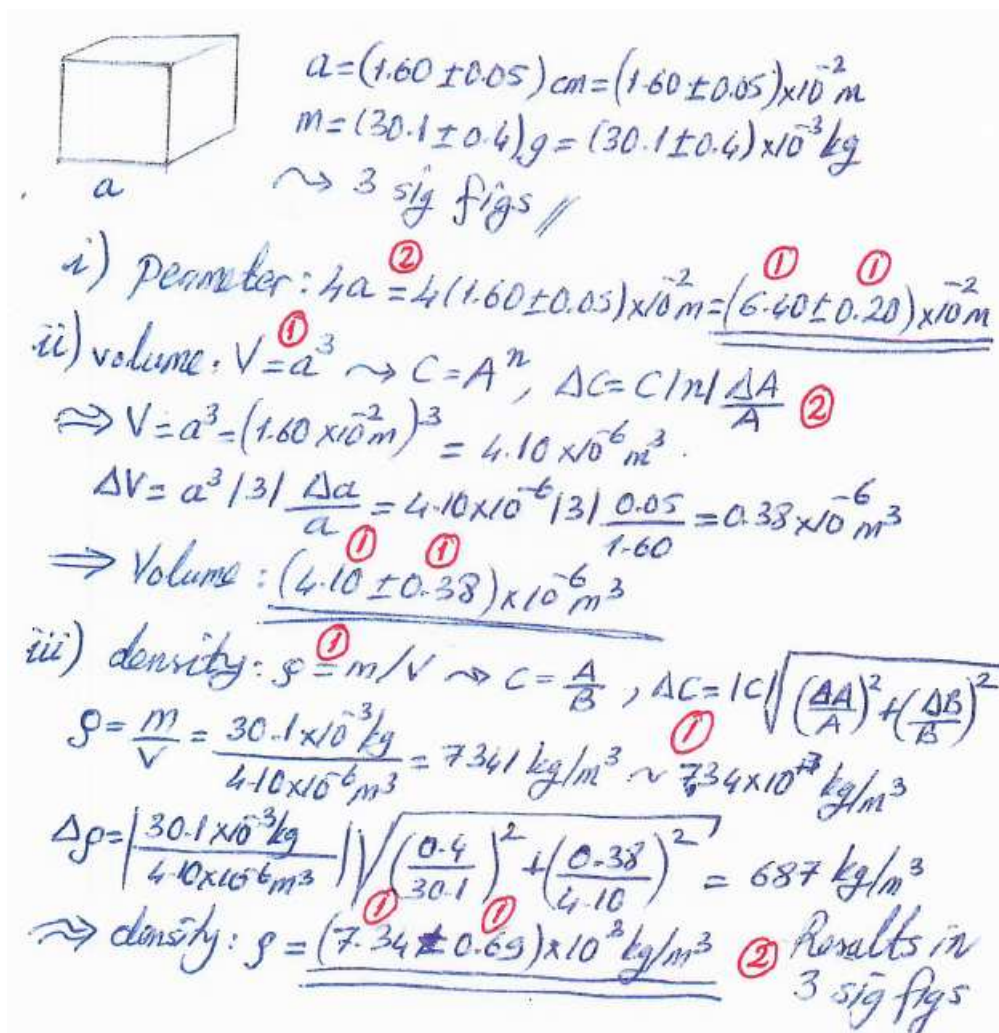 a=(1.60±0.05)cm=(1.60±0.05)x10⁻²m
m=(30.1±0.4)g=(30.1±0.4)x10⁻³kg
a
⇝ 3 sig figs //
i) Perimeter: 4a ② = 4(1.60±0.05)x10⁻²m = (6.40 ① ± 0.20 ①)x10⁻²m
ii) volume: V ① = a³ ⇝ C=Aⁿ, ΔC=C|n| ΔA/A ②
⇒ V=a³=(1.60x10⁻²m)³ = 4.10x10⁻⁶m³.
ΔV= a³|3| Δa/a = 4.10x10⁻⁶|3| 0.05/1.60 = 0.38x10⁻⁶m³
⇒ Volume: (4.10 ① ± 0.38 ①)x10⁻⁶m³
iii) density: ρ ① = m/V ⇝ C = A/B, ΔC=|C|√((ΔA/A)²+(ΔB/B)²)
ρ= m/V = 30.1x10⁻³kg/4.10x10⁻⁶m³ = 7341 kg/m³ ~ ① 7.34x10⁺³ kg/m³
Δρ=|30.1x10⁻³kg/4.10x10⁻⁶m³|√((0.4/30.1)²+(0.38/4.10)²) = 687 kg/m³
⇝ density: ρ = (7.34 ① ± 0.69 ①)x10³kg/m³ ② Results in
3 sig figs